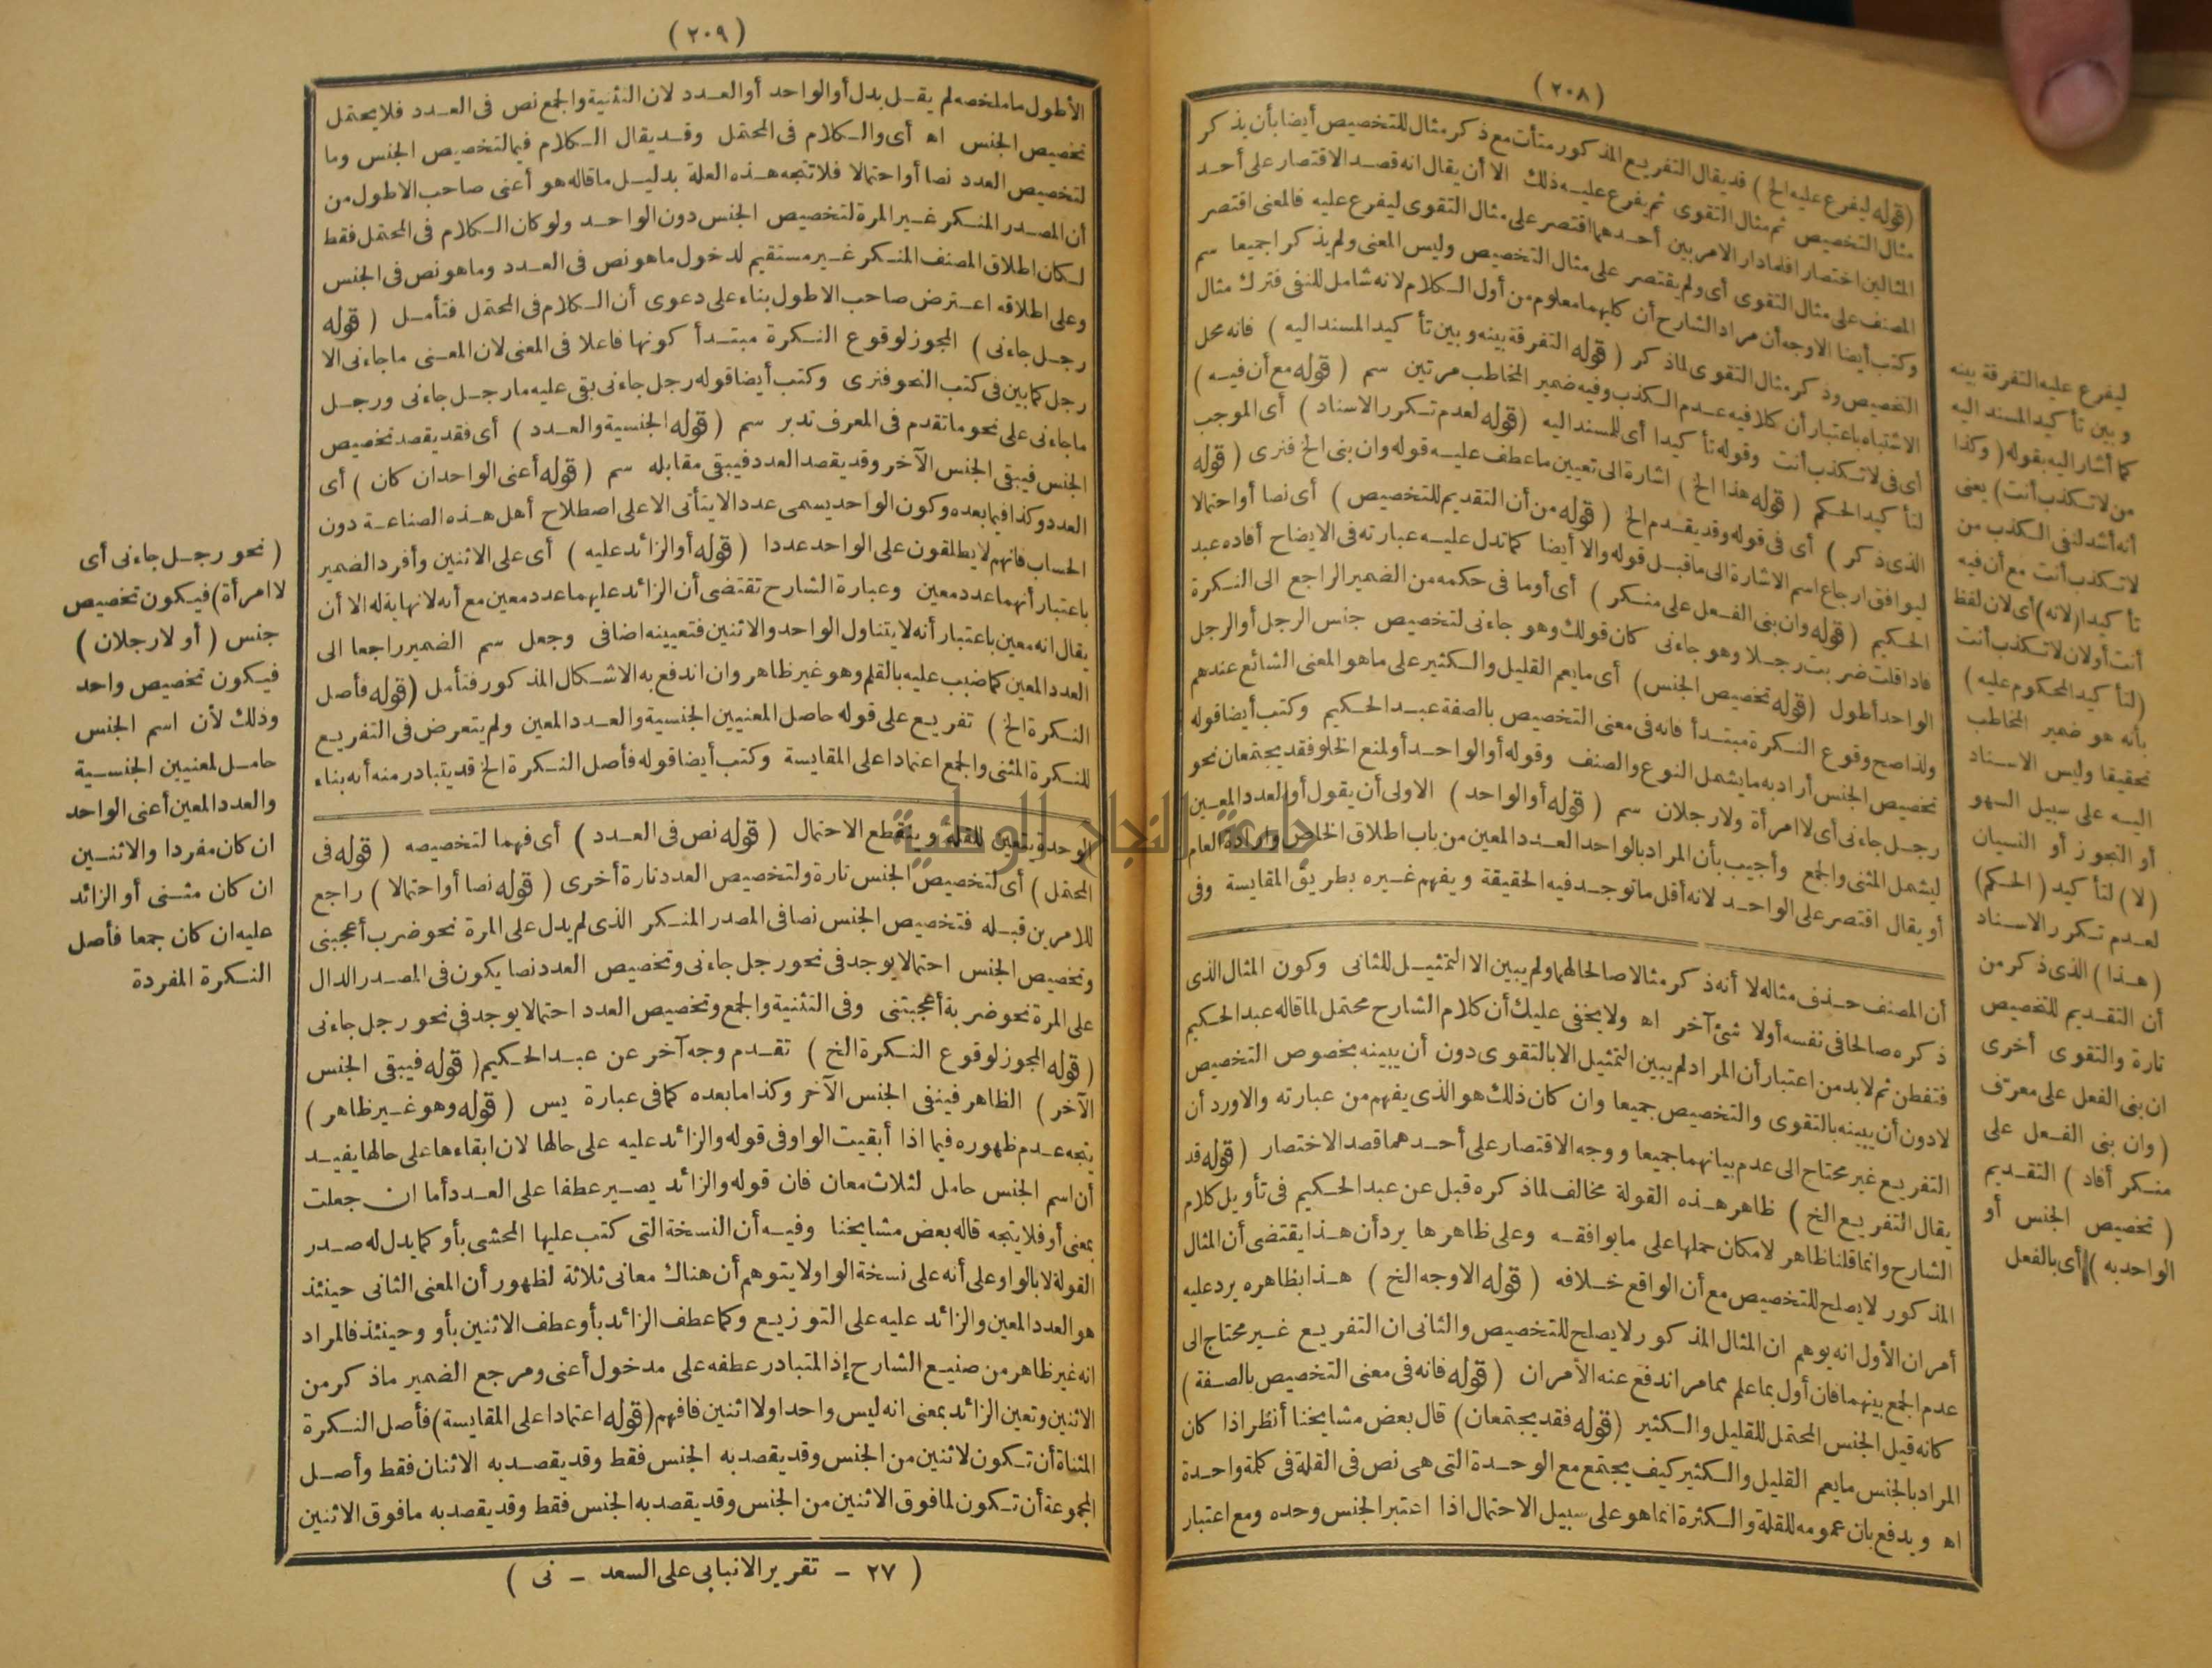 (٢٠٨)
(قوله ليفرع عليه الخ) قد يقال التفريع المذكور متأت مع ذكر مثال للتخصيص أيضا بأن يذكر
مثال التخصيص ثم مثال التقوى ثم يفرع عليه ذلك الا أن يقال انه قصد الاقتصار على أحد
المثالين اختصارا فلما دار الامر بين أحدهما اقتصر على مثال التقوى ليفرع عليه فالمعنى اقتصر
المصنف على مثال التقوى أى ولم يقتصر على مثال التخصيص وليس المعنى ولم يذكرا جميعا سم
وكتب أيضا الاوجه أن مراد الشارح أن كليهما معلوم من أول الكلام لانه شامل للنفى فترك مثال
التخصيص وذكر مثال التقوى لما ذكر (قوله التفرقة بينه وبين تأكيد المسند اليه) فانه محل
الاشتباه باعتبار أن كلا فيه عدم الكذب وفيه ضمير المخاطب مرتين سم (قوله مع أن فيه)
أى فى لا تكذب أنت وقوله تأكيدا أى للمسند اليه (قوله لعدم تكرر الاسناد) أى الموجب
لتأكيد الحكم (قوله هذا الخ) اشارة الى تعيين ما عطف عليه قوله وان بنى الخ فنرى (قوله
الذى ذكر) أى فى قوله وقد يقدم الخ (قوله من أن التقديم للتخصيص) أى نصا أو احتمالا
ليوافق ارجاع اسم الاشارة الى ما قبل قوله والا أيضا كما تدل عليه عبارته فى الايضاح أفاده عبد
الحكيم (قوله وان بنى الفعل على منكر) أى أو ما فى حكمه من الضمير الراجع الى النكرة
فاذا قلت ضربت رجلا وهو جاءنى كان قولك وهو جاءنى لتخصيص جنس الرجل أو الرجل
الواحد أطول (قوله تخصيص الجنس) أى ما يعم القليل والكثير على ما هو المعنى الشائع عندهم
ولذا صح وقوع النكرة مبتدأ فانه فى معنى التخصيص بالصفة عبد الحكيم وكتب أيضا قوله
تخصيص الجنس أراد به ما يشمل النوع والصنف وقوله أو الواحد أو لمنع الخلو فقد يجتمعان نحو
رجل جاءنى أى لا امرأة ولا رجلان سم (قوله أو الواحد) الاولى أن يقول أو العدد المعين
ليشمل المثنى والجمع وأجيب بأن المراد بالواحد العدد المعين من باب اطلاق الخاص وارادة العام
أو يقال اقتصر على الواحد لانه أقل ما توجد فيه الحقيقة ويفهم غيره بطريق المقايسة وفى
أن المصنف حذف مثاله لا أنه ذكر مثالا صالحا لهما ولم يبين الا التمثيل للثانى وكون المثال الذى
ذكره صالحا فى نفسه أولا شئ آخر اه ولا يخفى عليك أن كلام الشارح محتمل لما قاله عبد الحكيم
فتفطن ثم لابد من اعتبار أن المراد لم يبين التمثيل الا بالتقوى دون أن يبينه بخصوص التخصيص
لا دون أن يبينه بالتقوى والتخصيص جميعا وان كان ذلك هو الذى يفهم من عبارته والاورد أن
التفريع غير محتاج الى عدم بيانهما جميعا ووجه الاقتصار على أحدهما قصد الاختصار (قوله قد
يقال التفريع الخ) ظاهر هذه القولة مخالف لما ذكره قبل عن عبد الحكيم فى تأويل كلام
الشارح وانما قلنا ظاهر لامكان حملها على ما يوافقه وعلى ظاهرها يرد أن هذا يقتضى أن المثال
المذكور لا يصلح للتخصيص مع أن الواقع خلافه (قوله الاوجه الخ) هذا بظاهره يرد عليه
أمران الأول انه يوهم ان المثال المذكور لا يصلح للتخصيص والثانى ان التفريع غير محتاج الى
عدم الجمع بينهما فان أول بما علم مما مر اندفع عنه الأمران (قوله فانه فى معنى التخصيص بالصفة)
كانه قيل الجنس المحتمل للقليل والكثير (قوله فقد يجتمعان) قال بعض مشايخنا أنظر اذا كان
المراد بالجنس ما يعم القليل والكثير كيف يجتمع مع الوحدة التى هى نص فى القلة فى كلمة واحدة
اه ويدفع بان عمومه للقلة والكثرة انما هو على سبيل الاحتمال اذا اعتبر الجنس وحده ومع اعتبار
ليفرع عليه التفرقة بينه
وبين تأكيد المسند اليه
كما أشار اليه بقوله (وكذا
من لا تكذب أنت) يعنى
أنه أشد لنفى الكذب من
لا تكذب أنت مع أن فيه
تأكيدا (لانه) أى لان لفظ
أنت أو لان لا تكذب أنت
(لتأكيد المحكوم عليه)
بأنه هو ضمير المخاطب
تحقيقا وليس الاسناد
اليه على سبيل السهو
أو التجوز أو النسيان
(لا) لتأكيد (الحكم)
لعدم تكرر الاسناد
(هذا) الذى ذكر من
أن التقديم للتخصيص
تارة والتقوى أخرى
ان بنى الفعل على معرف
(وان بنى الفعل على
منكر أفاد) التقديم
(تخصيص الجنس أو
الواحد به) أى بالفعل
(٢٠٩)
الأطول ما ملخصه لم يقل بدل أو الواحد أو العدد لان التثنية والجمع نص فى العدد فلا يحتمل
تخصيص الجنس اه أى والكلام فى المحتمل وقد يقال الكلام فيما لتخصيص الجنس وما
لتخصيص العدد نصا أو احتمالا فلا تتجه هذه العلة بدليل ما قاله هو أعنى صاحب الاطول من
أن المصدر المنكر غير المرة لتخصيص الجنس دون الواحد ولو كان الكلام فى المحتمل فقط
لكان اطلاق المصنف المنكر غير مستقيم لدخول ما هو نص فى العدد وما هو نص فى الجنس
وعلى اطلاقه اعترض صاحب الاطول بناء على دعوى أن الكلام فى المحتمل فتأمل (قوله
رجل جاءنى) المجوز لوقوع النكرة مبتدأ كونها فاعلا فى المعنى لان المعنى ما جاءنى الا
رجل كما بين فى كتب النحو فنرى وكتب أيضا قوله رجل جاءنى بقى عليه ما رجل جاءنى ورجل
ما جاءنى على نحو ما تقدم فى المعرف تدبر سم (قوله الجنسية والعدد) أى فقد يقصد تخصيص
الجنس فيبقى الجنس الآخر وقد يقصد العدد فيبقى مقابله سم (قوله أعنى الواحد ان كان) أى
العدد وكذا فيما بعده وكون الواحد يسمى عددا لا يتأتى الا على اصطلاح أهل هذه الصناعة دون
الحساب فانهم لا يطلقون على الواحد عددا (قوله أو الزائد عليه) أى على الاثنين وأفرد الضمير
باعتبار أنهما عدد معين وعبارة الشارح تقتضى أن الزائد عليهما عدد معين مع أنه لا نهاية له الا أن
يقال انه معين باعتبار أنه لا يتناول الواحد والاثنين فتعيينه اضافى وجعل سم الضمير راجعا الى
العدد المعين كما ضبب عليه بالقلم وهو غير ظاهر وان اندفع به الاشكال المذكور فتأمل (قوله فأصل
النكرة الخ) تفريع على قوله حاصل المعنيين الجنسية والعدد المعين ولم يتعرض فى التفريع
للنكرة المثنى والجمع اعتمادا على المقايسة وكتب أيضا قوله فأصل النكرة الخ قد يتبادر منه أنه بناء
الوحدة يتعين للقلة وينقطع الاحتمال (قوله نص فى العدد) أى فهما لتخصيصه (قوله فى
المحتمل) أى لتخصيص الجنس تارة ولتخصيص العدد تارة أخرى (قوله نصا أو احتمالا) راجع
للامرين قبله فتخصيص الجنس نصا فى المصدر المنكر الذى لم يدل على المرة نحو ضرب أعجبنى
وتخصيص الجنس احتمالا يوجد فى نحو رجل جاءنى وتخصيص العدد نصا يكون فى المصدر الدال
على المرة نحو ضربة أعجبتنى وفى التثنية والجمع وتخصيص العدد احتمالا يوجد فى نحو رجل جاءنى
(قوله المجوز لوقوع النكرة الخ) تقدم وجه آخر عن عبد الحكيم (قوله فيبقى الجنس
الآخر) الظاهر فينفى الجنس الآخر وكذا ما بعده كما فى عبارة يس (قوله وهو غير ظاهر)
يتجه عدم ظهوره فيما اذا أبقيت الواو فى قوله والزائد عليه على حالها لان ابقاءها على حالها يفيد
أن اسم الجنس حامل لثلاث معان فان قوله والزائد يصير عطفا على العدد أما ان جعلت
بمعنى أو فلا يتجه قاله بعض مشايخنا وفيه أن النسخة التى كتب عليها المحشى بأو كما يدل له صدر
القولة لا بالواو على أنه على نسخة الواو لا يتوهم أن هناك معانى ثلاثة لظهور أن المعنى الثانى حينئذ
هو العدد المعين والزائد عليه على التوزيع وكما عطف الزائد بأو عطف الاثنين بأو وحينئذ فالمراد
انه غير ظاهر من صنيع الشارح إذ المتبادر عطفه على مدخول أعنى ومرجع الضمير ما ذكر من
الاثنين وتعين الزائد بمعنى انه ليس واحدا ولا اثنين فافهم (قوله اعتمادا على المقايسة) فأصل النكرة
المثناة أن تكون لاثنين من الجنس وقد يقصد به الجنس فقط وقد يقصد به الاثنان فقط وأصل
المجموعة أن تكون لما فوق الاثنين من الجنس وقد يقصد به الجنس فقط وقد يقصد به ما فوق الاثنين
(نحو رجل جاءنى أى
لا امرأة) فيكون تخصيص
جنس (أو لا رجلان)
فيكون تخصيص واحد
وذلك لأن اسم الجنس
حامل لمعنيين الجنسية
والعدد المعين أعنى الواحد
ان كان مفردا والاثنين
ان كان مثنى أو الزائد
عليه ان كان جمعا فأصل
النكرة المفردة
(٢٧ - تقرير الانبابى على السعد - نى)
جامعة النجاح الوطنية